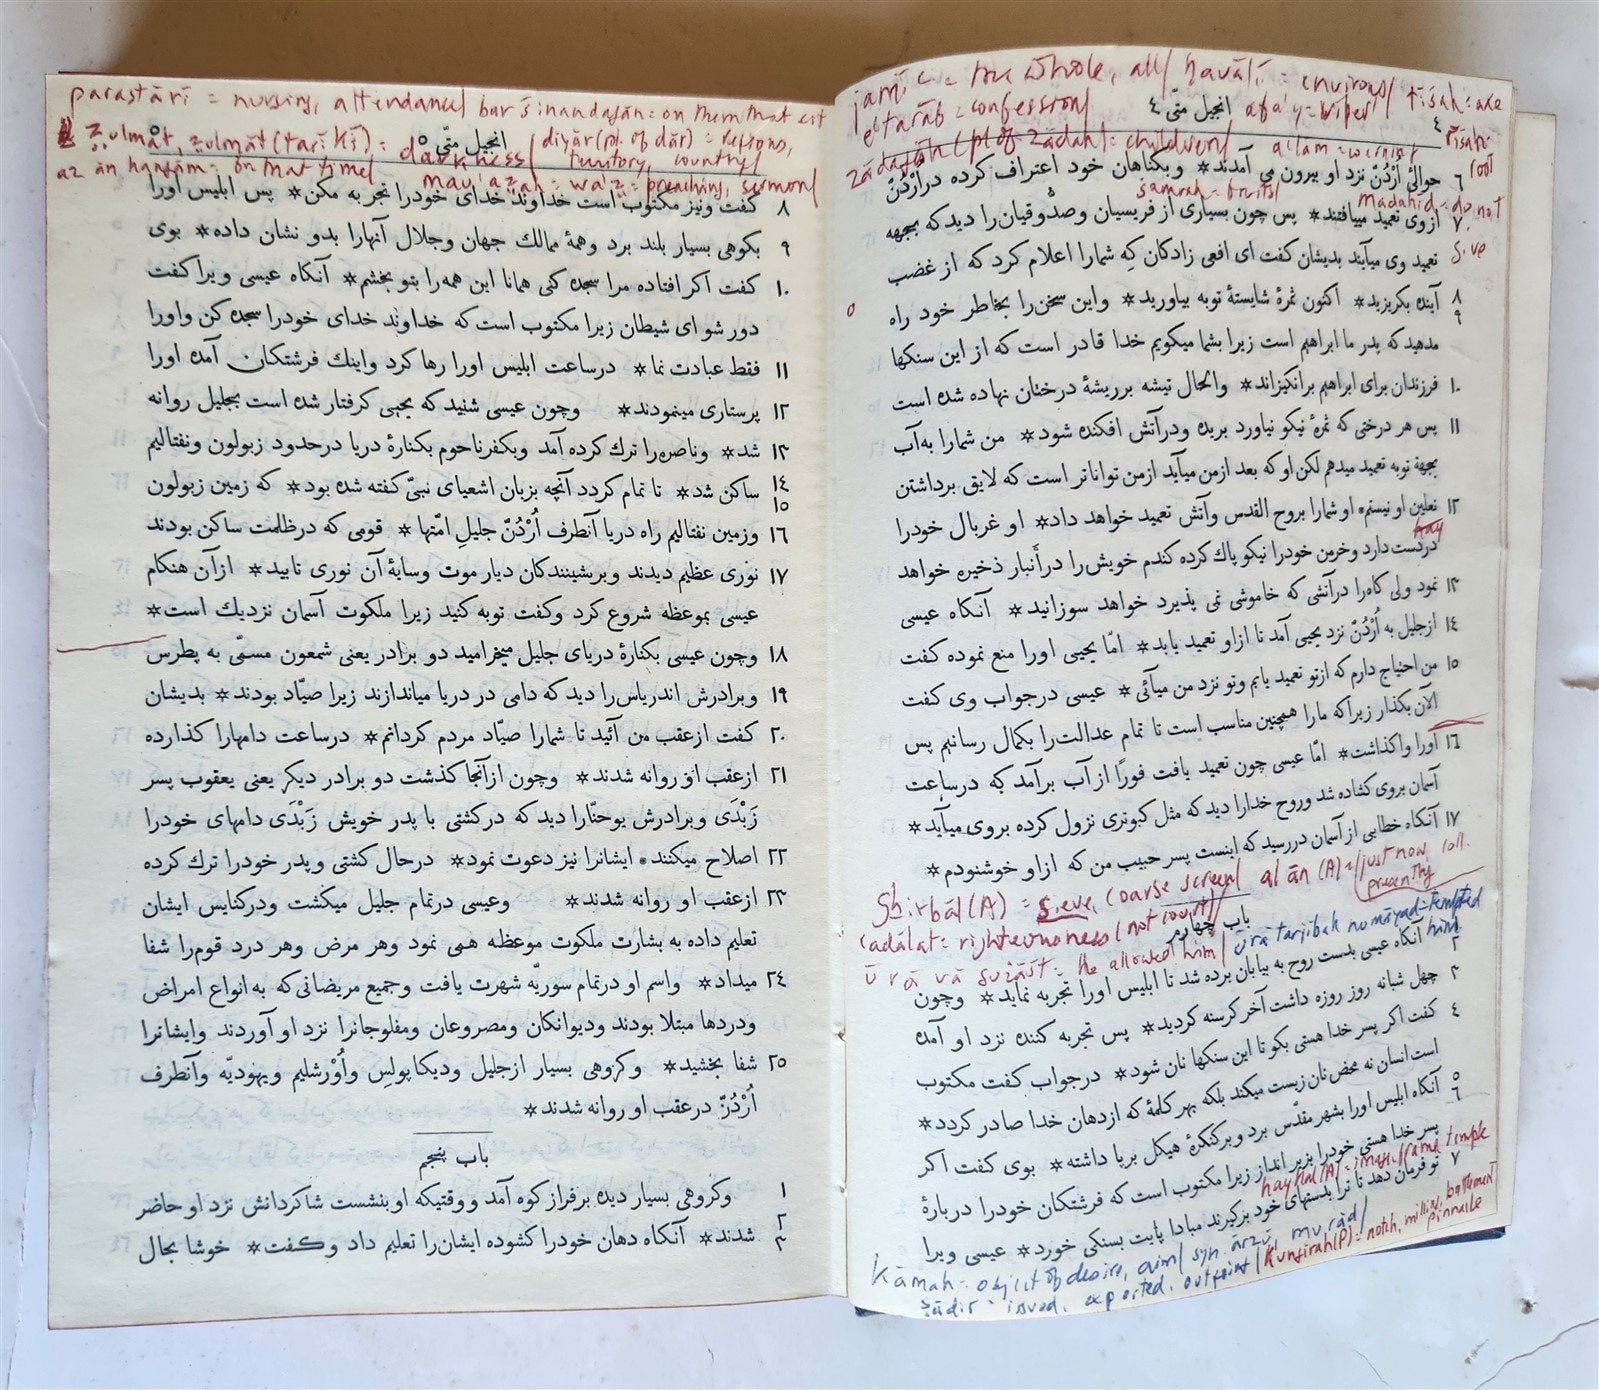 jamīʿ = the whole, all / havālī = environs / tīsah = axe
eʿtarāf = confession / انجیل متّی ٤ afaʿy = viper / rīsah:
٤
zādagān (pl of zādah) = children / aʿlam = root
٦ حوالیٔ اُرْدُنّ نزد او بیرون می آمدند* وبگناهان خود اعتراف کرده در اُرْدُنّ
samarah = fruits / madahid = do not give
٧ ازوی تعمید مییافتند* پس چون بسیاری از فریسیان وصدوقیان را دید که بجهة
تعمید وی میآیند بدیشان گفت ای افعی زادگان کِه شمارا اعلام کرد که از غضب
٨ آینده بگریزید* اکنون ثمرهٔ شایستهٔ توبه بیاورید* واین سخن را بخاطر خود راه
٩
مدهید که پدر ما ابراهیم است زیرا بشما میگویم خدا قادر است که از این سنکها
١٠ فرزندان برای ابراهیم برانگیزاند* والحال تیشه بر ریشهٔ درختان نهاده شده است
١١ پس هر درختی که ثمرهٔ نیکو نیاورد بریده ودرآتش افکنده شود* من شمارا به آب
بجهة توبه تعمید میدهم لکن او که بعد ازمن میآید ازمن تواناتر است که لایق برداشتن
١٢ نعلین او نیستم* او شمارا بروح القدس وآتش تعمید خواهد داد* او غربال خودرا
hay
دردست دارد وخرمن خودرا نیکو پاک کرده کندم خویش را درأنبار ذخیره خواهد
١٣ نمود ولی کاه را درآتشی که خاموشی نمی پذیرد خواهد سوزانید* آنکاه عیسی
١٤ ازجلیل به اُرْدُنّ نزد یحیی آمد تا ازاو تعمید یابد* امّا یحیی اورا منع نموده کفت
١٥ من احتیاج دارم که ازتو تعمید یابم وتو نزد من میآئی* عیسی درجواب وی کفت
الآن بکذار زیراکه مارا همچنین مناسب است تا تمام عدالت را بکمال رسانیم پس
١٦ اورا واکذاشت* امّا عیسی چون تعمید یافت فورًا از آب برآمد که درساعت
آسمان بروی کشاده شد وروح خدارا دید که مثل کبوتری نزول کرده بروی میآید*
١٧ آنکاه خطابی ازآسمان دررسید که اینست پسر حبیب من که ازاو خوشنودم*
Ghirbāl (A) = sieve, coarse screen / al ān (A) = / just now, coll. presently
باب چهارم
ʿadālat = righteousness (not court) / ūrā tarjibah numāyad = tempted him
ū rā vā guzāšt = he allowed him /
٢ آنکاه عیسی بدست روح به بیابان برده شد تا ابلیس اورا تجربه نماید* وچون
٣ چهل شبانه روز روزه داشت آخر کرسنه کردید* پس تجربه کننده نزد او آمده
٤ کفت اکر پسر خدا هستی بکو تا این سنکها نان شود* درجواب کفت مکتوب
است انسان نه محض نان زیست میکند بلکه بهر کلمهٔ که ازدهان خدا صادر کردد*
٥ آنکاه ابلیس اورا بشهر مقدّس برد وبر کنکرهٔ هیکل برپا داشته* بوی کفت اکر
٦
پسر خدا هستی خودرا بزیر انداز زیرا مکتوب است که فرشتکان خودرا دربارهٔ
haykal (A) = image, frame, temple
٧ تو فرمان دهد تا ترا بدستهای خود برکیرند مبادا پایت بسنکی خورد* عیسی ویرا
Kāmah = object of desire, aim / syn ārzū, murād / Kungirah (P) = notch, battlement, pinnacle
ṣādir = issued, exported, outpoint
parastārī = nursing, attendance / bar šinandagān = on them that sit
ẓulmat, ẓulmāt (tarīkī) = darkness / diyār (pl. of dār) = regions, territory, country /
انجیل متّی ٥
az ān hangām = on that time / mauʿaẓah = waʿẓ = preaching, sermon /
٨ کفت ونیز مکتوب است خداوند خدای خودرا تجربه مکن* پس ابلیس اورا
٩ بکوهی بسیار بلند برد وهمهٔ ممالک جهان وجلال آنهارا بدو نشان داده* بوی
١٠ کفت اکر افتاده مرا سجده کنی همانا این همه را بتو بخشم* آنکاه عیسی ویرا کفت
دور شو ای شیطان زیرا مکتوب است که خداوند خدای خودرا سجده کن واورا
١١ فقط عبادت نما* درساعت ابلیس اورا رها کرد واینک فرشتکان آمده اورا
١٢ پرستاری مینمودند* وچون عیسی شنید که یحیی کرفتار شده است بجلیل روانه
١٣ شد* وناصره را ترک کرده آمد وبکفرناحوم بکنارهٔ دریا درحدود زبولون ونفتالیم
١٤ ساکن شد* تا تمام کردد آنچه بزبان اشعیای نبیّ کفته شده بود* که زمین زبولون
١٥
١٦ وزمین نفتالیم راه دریا آنطرف اُرْدُنّ جلیلِ امّتها* قومی که درظلمت ساکن بودند
١٧ نوری عظیم دیدند وبرنشینندکان دیار موت وسایهٔ آن نوری تابید* ازآن هنکام
عیسی بموعظه شروع کرد وکفت توبه کنید زیرا ملکوت آسمان نزدیک است*
١٨ وچون عیسی بکنارهٔ دریای جلیل میخرامید دو برادر یعنی شمعون مسمّی به پطرس
١٩ وبرادرش اندریاس را دید که دامی در دریا میاندازند زیرا صیّاد بودند* بدیشان
٢٠ کفت ازعقب من آئید تا شمارا صیّاد مردم کردانم* درساعت دامهارا کذارده
٢١ ازعقب او روانه شدند* وچون ازآنجا کذشت دو برادر دیکر یعنی یعقوب پسر
زَبْدَی وبرادرش یوحنّارا دید که درکشتی با پدر خویش زَبْدَی دامهای خودرا
٢٢ اصلاح میکنند* ایشانرا نیز دعوت نمود* درحال کشتی وپدر خودرا ترک کرده
٢٣ ازعقب او روانه شدند* وعیسی درتمام جلیل میکشت ودرکنایس ایشان
تعلیم داده به بشارت ملکوت موعظه همی نمود وهر مرض وهر درد قوم را شفا
٢٤ میداد* واسم او درتمام سوریّه شهرت یافت وجمیع مریضانی که به انواع امراض
ودردها مبتلا بودند ودیوانکان ومصروعان ومفلوجانرا نزد او آوردند وایشانرا
٢٥ شفا بخشید* وکروهی بسیار ازجلیل ودیکاپولس وأُوْرشلیم ویهودیّه وآنطرف
اُرْدُنّ درعقب او روانه شدند*
باب پنجم
١ وکروهی بسیار دیده برفراز کوه آمد ووقتیکه او بنشست شاکردانش نزد او حاضر
٢ شدند* آنکاه دهان خودرا کشوده ایشان را تعلیم داد وکفت* خوشا بحال
٣